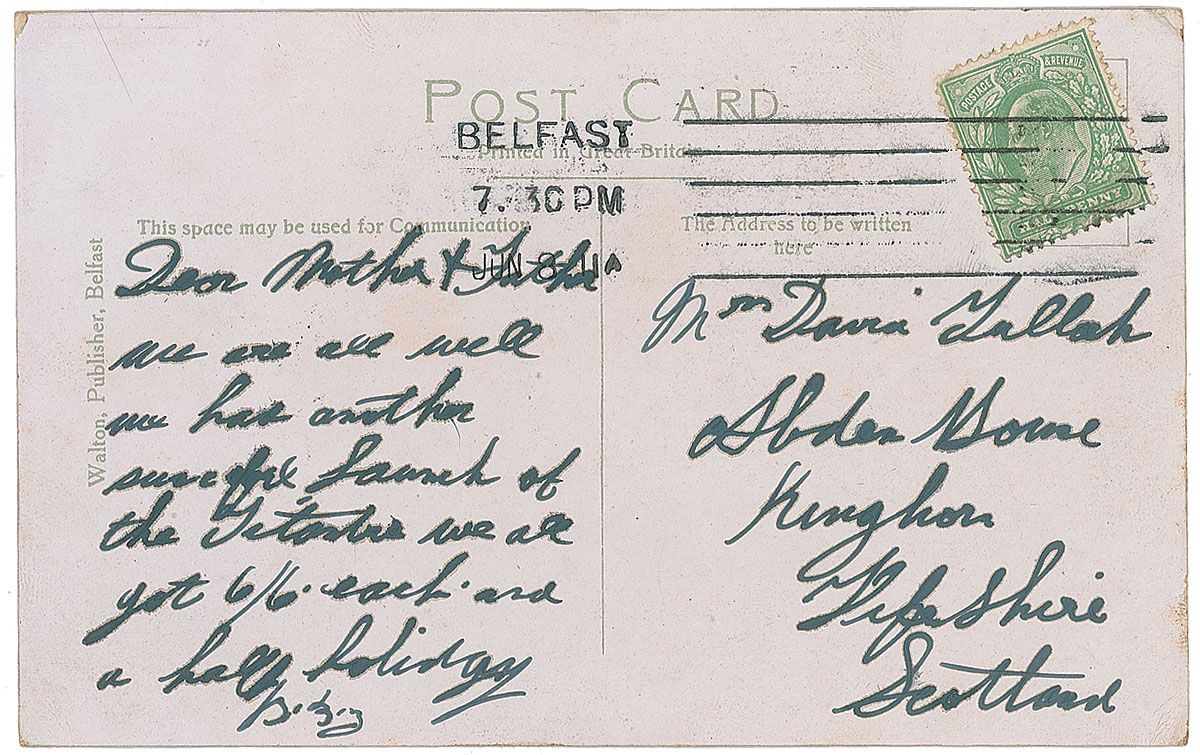 POST CARD
Printed in Great Britain
BELFAST
7.30PM
JUN 8 11
POSTAGE & REVENUE
HALFPENNY
This space may be used for Communication
The Address to be written
here
Walton, Publisher, Belfast
Dear Mother & Father
we are all well
we had another
Launch of
the Titanic we all
got 6/6 each and
a half holiday
Mrs David Tulloch
Abden House
Kinghorn
Fifeshire
Scotland